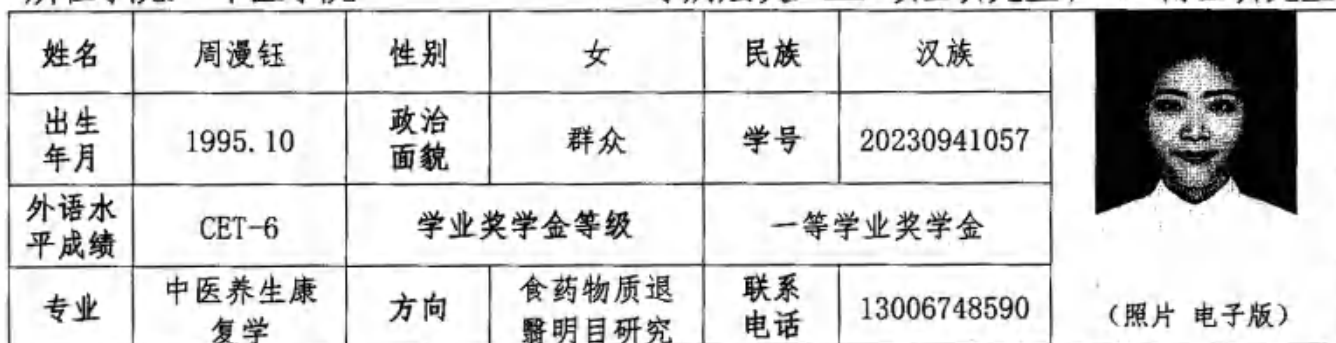 姓名 周漫钰 性别 女 民族 汉族
出生年月 1995.10 政治面貌 群众 学号 20230941057
外语水平成绩 CET-6 学业奖学金等级 一等学业奖学金
专业 中医养生康复学 方向 食药物质退翳明目研究 联系电话 13006748590
(照片 电子版)